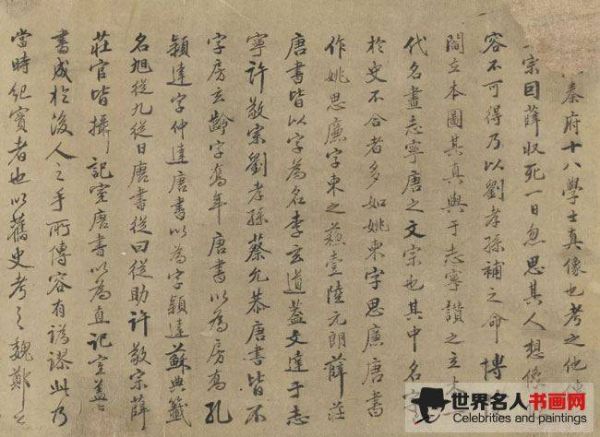 秦府十八學士真像也考之他傳
宗因薛收死一日忽思其人想像
容不可得乃以劉孝孫補之命博
閻立本圖其真與于志寧讚之立本
代名畫志寧唐之文宗也其中名字
於史不合者多如姚柬字思廉唐書
作姚思廉字柬之蘇壹陸元朗薛莊
唐書皆以字為名李玄道蓋文達于志
寧許敬宗劉孝孫蔡允恭唐書皆不
字房玄齡字喬年唐書以為房喬孔
穎達字仲達唐書以為字穎達蘇典籤
名旭從九從日唐書從曰從助許敬宗薛
莊官皆攝記室唐書以為直記室蓋
書成於後人之手所傳容有訛謬此乃
當時紀實者也以舊史考之魏鄭公
世界名人书画网
Celebrities and paintings